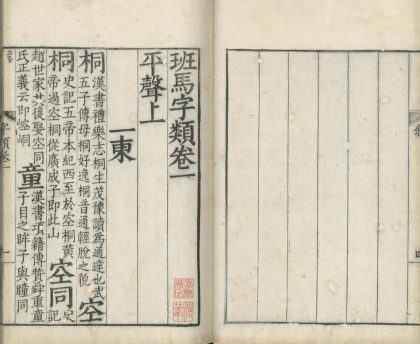 班馬字類卷一
平聲上
一東
桐漢書禮樂志桐生茂豫讀爲通達也武五子傳母桐好逸桐音通輕脫之貌空
桐史記五帝本紀西至於空桐黃帝過空桐從廣成子即此山空同史記
趙世家其後娶空同氏正義云即崆峒童漢書項籍傳贊舜重童子目之眸子與瞳同
字類卷一
一
四